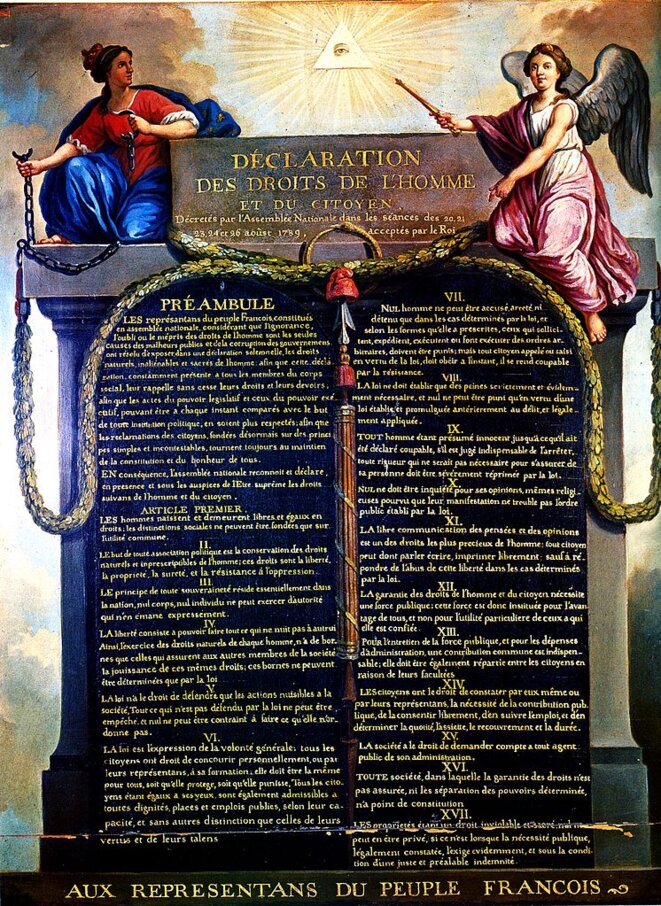 DÉCLARATION
DES DROITS DE L'HOMME
ET DU CITOYEN,
Décretés par l'Assemblée Nationale dans les séances des 20, 21
23, 24 et 26 aoûst 1789, acceptés par le Roi
PRÉAMBULE
LES représentans du peuple François, constitués
en assemblée nationale, considérant que l'ignorance,
l'oubli ou le mépris des droits de l'homme sont les seules
causes des malheurs publics et de la corruption des gouvernemens
ont résolu d'exposer, dans une déclaration solemnelle, les droits
naturels, inaliénables et sacrés de l'homme; afin que cette décla-
ration, constamment présente a tous les membres du corps
social, leur rappelle sans cesse leurs droits et leurs devoirs;
afin que les actes du pouvoir législatif et ceux du pouvoir exé-
cutif, pouvant être a chaque instant comparés avec le but
de toute institution politique, en soient plus respectés; afin que
les reclamations des citoyens, fondées désormais sur des princi
pes simples et incontestables, tournent toujours au maintien
de la constitution et du bonheur de tous.
EN conséquence, l'assemblée nationale reconnoît et déclare,
en presence et sous les auspices de l'Etre suprême les droits
suivans de l'homme et du citoyen.
ARTICLE PREMIER.
LES hommes naissent et demeurent libres et égaux en
droits; les distinctions sociales ne peuvent être fondées que sur
l'utilité commune.
II.
LE but de toute association politique est la conservation des droits
naturels et imprescriptibles de l'homme; ces droits sont la liberté,
la propriété, la sureté, et la résistance à l'oppression.
III.
LE principe de toute souveraineté réside essentiellement dans
la nation, nul corps, nul individu ne peut exercer d'autorité
qui n'en émane expressément.
IV.
LA liberté consiste a pouvoir faire tout ce qui ne nuit pas à autrui
Ainsi, l'exercice des droits naturels de chaque homme, n'a de bor-
nes que celles qui assurent aux autres membres de la société
la jouissance de ces mêmes droits; ces bornes ne peuvent
être déterminées que par la loi
V.
LA loi n'a le droit de défendre que les actions nuisibles a la
société. Tout ce qui n'est pas défendu par la loi ne peut être
empêché, et nul ne peut être contraint à faire ce qu'elle n'or-
donne pas.
VI.
LA loi est l'expression de la volonté générale; tous les
citoyens ont droit de concourir personnellement, ou par
leurs représentans, à sa formation; elle doit être la même
pour tous, soit qu'elle protege, soit qu'elle punisse. Tous les cito-
yens étant égaux a ses yeux, sont également admissibles a
toutes dignités, places et emplois publics, selon leur ca-
pacité, et sans autres distinction que celles de leurs
vertus et de leurs talens
VII.
NUL homme ne peut être accusé, arreté, ni
détenu que dans les cas déterminés par la loi, et
selon les formes qu'elle a prescrites. ceux qui sollici-
tent, expédient, exécutent ou font exécuter des ordres ar-
bitraires, doivent être punis; mais tout citoyen appelé ou saisi
en vertu de la loi, doit obéir a l'instant, il se rend coupable
par la résistance.
VIII.
LA loi ne doit établir que des peines strictement et évidem-
ment nécessaire, et nul ne peut être puni qu'en vertu d'une
loi établie, et promulguée antérierement au délit, et légale-
ment appliquée.
IX.
TOUT homme étant présumé innocent jusqu'a ce qu'il ait
été déclaré coupable, s'il est jugé indispensable de l'arrêter,
toute rigueur qui ne serait pas nécessaire pour s'assurer de
sa personne doit être sévèrement réprimé par la loi.
X.
NUL ne doit être inquiété pour ses opinions, mêmes religi-
euses pourvu que leur manifestation ne trouble pas l'ordre
public établi par la loi.
XI.
LA libre communication des pensées et des opinions
est un des droits les plus precieux de l'homme; tout citoyen
peut dont parler écrire, imprimer librement; sauf a ré-
pondre de l'abus de cette liberté dans les cas déterminés
par la loi.
XII.
LA garantie des droits de l'homme et du citoyen nécessite
une force publique; cette force est donc instituée pour l'avan-
tage de tous, et non pour l'utilité particulière de ceux a qui
elle est confiée.
XIII.
POUR l'entretien de la force publique, et pour les dépenses
d'administration, une contribution commune est indispen-
sable; elle doit être également répartie entre les citoyens en
raison de leurs facultées
XIV.
LES citoyens ont le droit de constater par eux même ou
par leurs représentans, la nécessité de la contribution pub-
lique, de la consentir librement, d'en suivre l'emploi, et d'en
déterminer la quotité, l'assiette, le recouvrement et la durée.
XV.
LA société a le droit de demander compte a tout agent
public de son administration.
XVI.
TOUTE société, dans laquelle la garantie des droits n'est
pas assurée, ni les séparation des pouvoirs déterminée,
n'a point de constitution
XVII.
LES propriétés étant un droit inviolable et sacré, nul ne
peut en être privé, si ce n'est lorsque la nécessité publique,
légalement constatée, l'exige evidemment, et sous la condi
tion d'une juste et préalable indemnité.
AUX REPRESENTANS DU PEUPLE FRANCOIS